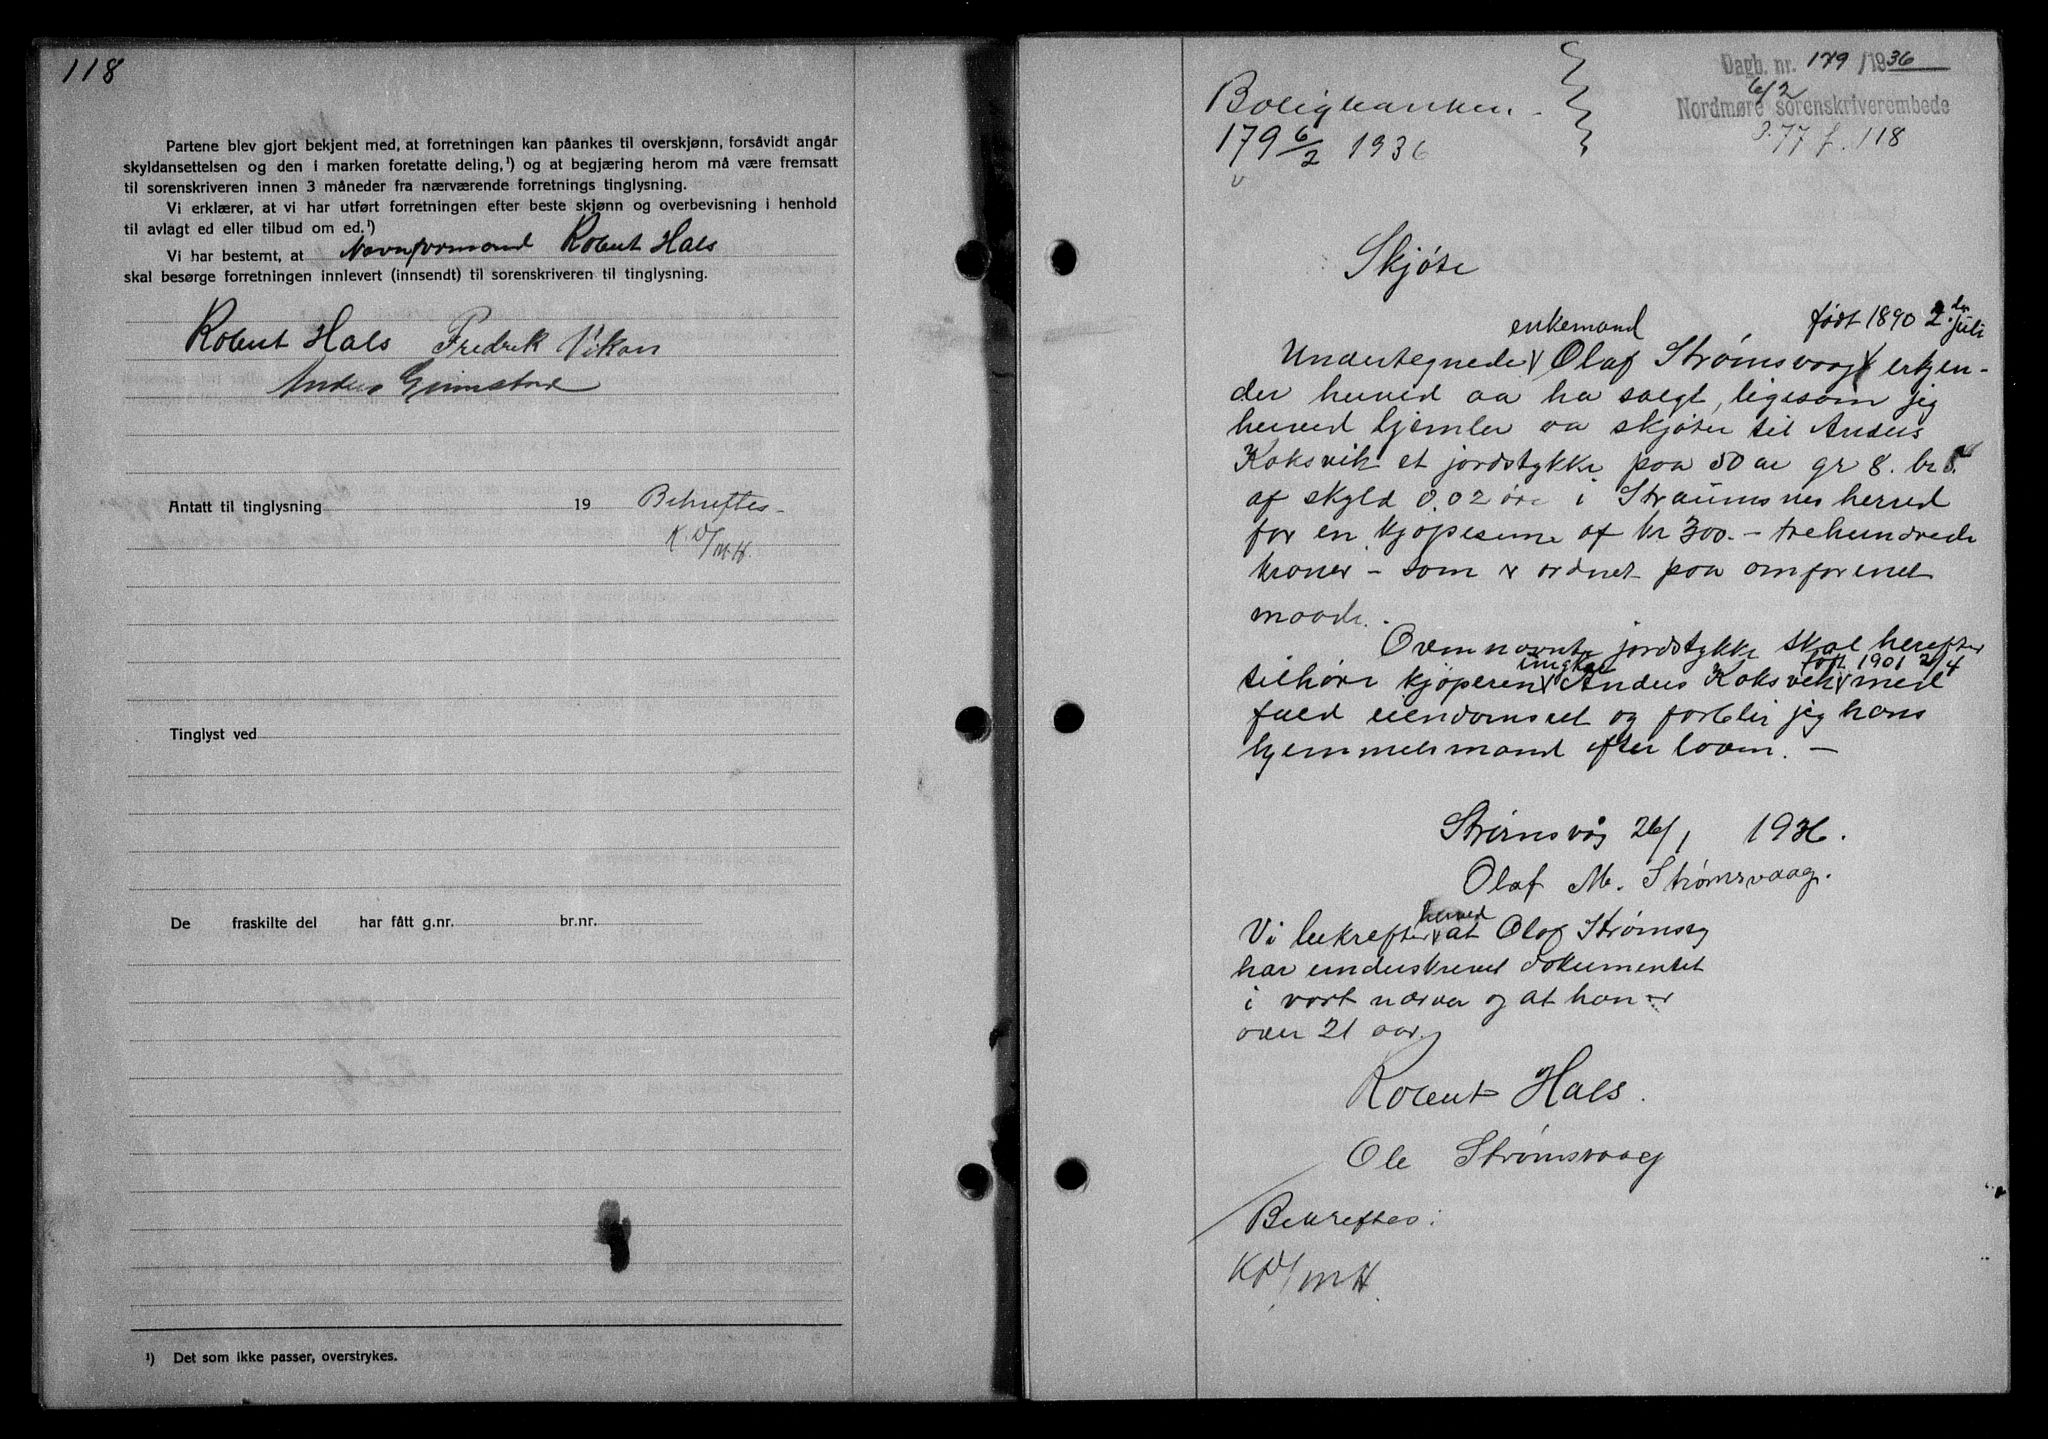 118
Partene blev gjort bekjent med, at forretningen kan påankes til overskjønn, forsåvidt angår
skyldansettelsen og den i marken foretatte deling,¹) og at begjæring herom må være fremsatt
til sorenskriveren innen 3 måneder fra nærværende forretnings tinglysning.
Vi erklærer, at vi har utført forretningen efter beste skjønn og overbevisning i henhold
til avlagt ed eller tilbud om ed.¹)
Vi har bestemt, at Navnformand Robert Hals
skal besørge forretningen innlevert (innsendt) til sorenskriveren til tinglysning.
Robert Hals Fredrik Vikan
Anders Grimstad
Antatt til tinglysning 19 Bekreftes
K.D/M.H.
Tinglyst ved
De fraskilte del har fått g.nr. br.nr.
¹) Det som ikke passer, overstrykes.
Dagb. nr. 179 /1936
6/2
Nordmøre sorenskriverembede
P. 77 f. 118
Boligbanken.
179 6/2 1936
Skjøte
enkemand født 1890 2 dn juli
Undertegnede Olaf Strømsvaag erkjen-
der herved aa ha solgt, ligesom jeg
herved hjemler aa skjøter til Anders
Koksvik et jordstykke paa 50 ar gr 8. br 5
af skyld 0.02 øre i Straumsnes herred
for en kjøpesum af kr 300.- trehundrede
kroner - som er ordnet paa omforenet
maade.
Ovennevnte jordstykke skal herefter
ungkar født 1901 2/4
tilhøre kjøperen Anders Koksvik med
fuld eiendomsret og forblir jeg hans
hjemmelsmand efter loven. -
Strømsvåg 26/1 1936.
Olaf M. Strømsvaag.
herved
Vi bekrefter at Olaf Strømsvg
har underskrevet dokumentet
i vort nærvær og at han er
over 21 aar
Robert Hals.
Ole Strømsvaag
Bekreftes:
KD/MH.